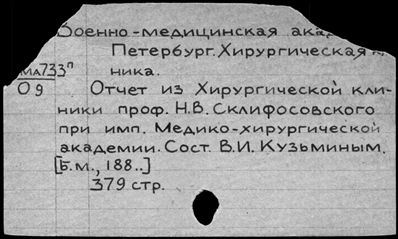 Военно-медицинская
Петербург. Хирургическая
ника.
МА733п
О9
Отчет из Хирургической кли-
ники проф. Н.В. Склифосовского
при имп. Медико-хирургической
академии. Сост. В.И. Кузьминым.
[Б.м., 188..]
379 стр.